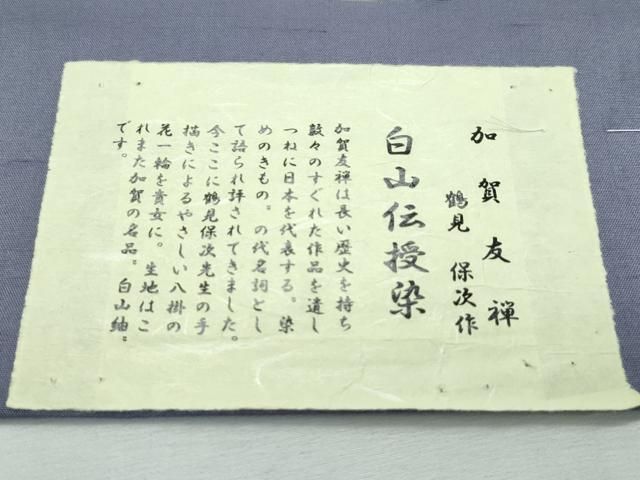 加賀友禅
鶴見 保次作
白山伝授染
加賀友禅は長い歴史を持ち
数々のすぐれた作品を遺し
つねに日本を代表する。染
めのきもの。の代名詞とし
て語られ評されてきました。
今ここに鶴見保次先生の手
描きによるやさしい八掛の
花一輪を貴女に。生地はこ
れまた加賀の名品。白山紬。
です。